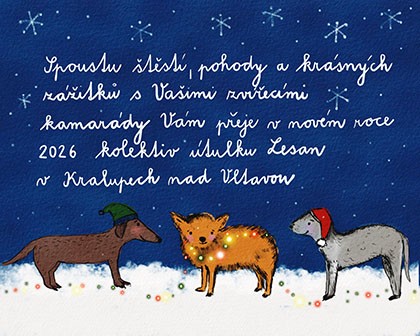 Spoustu štěstí, pohody a krásných
zážitků s Vašimi zvířecími
kamarády Vám přeje v novém roce
2026 kolektiv útulku Lesan
v Kralupech nad Vltavou